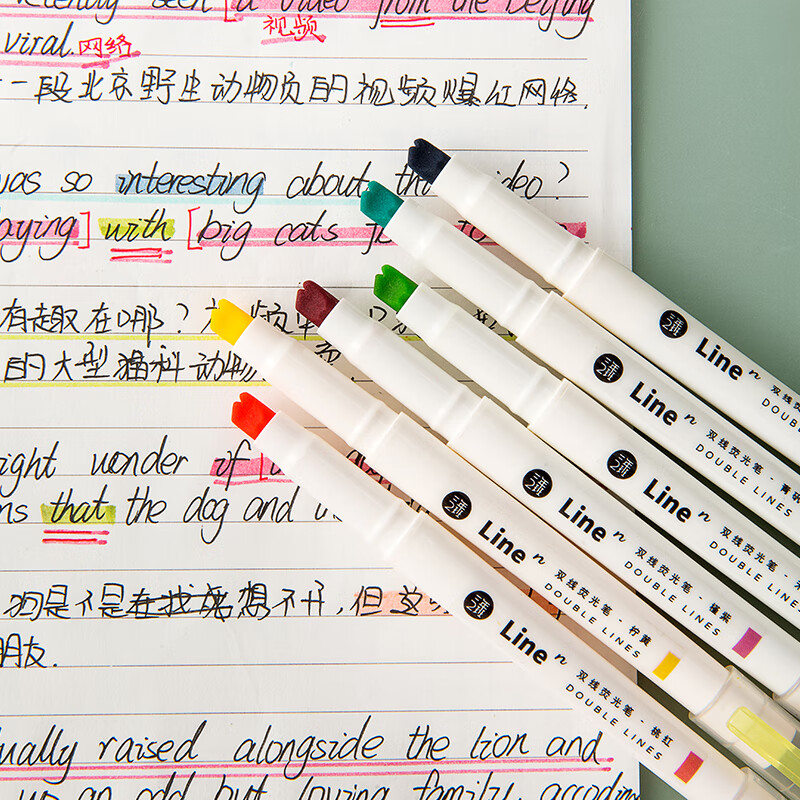 seen [a video from the Beijing
视频
viral. 网络
一段北京野生动物园的视频爆红网络.
was so interesting about this video?
aying] with [big cats
有趣在哪?
的大型猫科动物
ight wonder if
ns that the dog and
狗是不是在找魂想不开,但这
朋友.
ually raised alongside the lion and
up an odd but loving family, accordin
三年2班 Line n 双线荧光笔
DOUBLE
三年2班 Line n 双线荧光笔 - 青
DOUBLE LINES
三年2班 Line n 双线荧光笔
DOUBLE LINES
三年2班 Line n 双线荧光笔 - 槿紫
DOUBLE LINES
三年2班 Line n 双线荧光笔 - 柠黄
DOUBLE LINES
三年2班 Line n 双线荧光笔 - 桃红
DOUBLE LINES